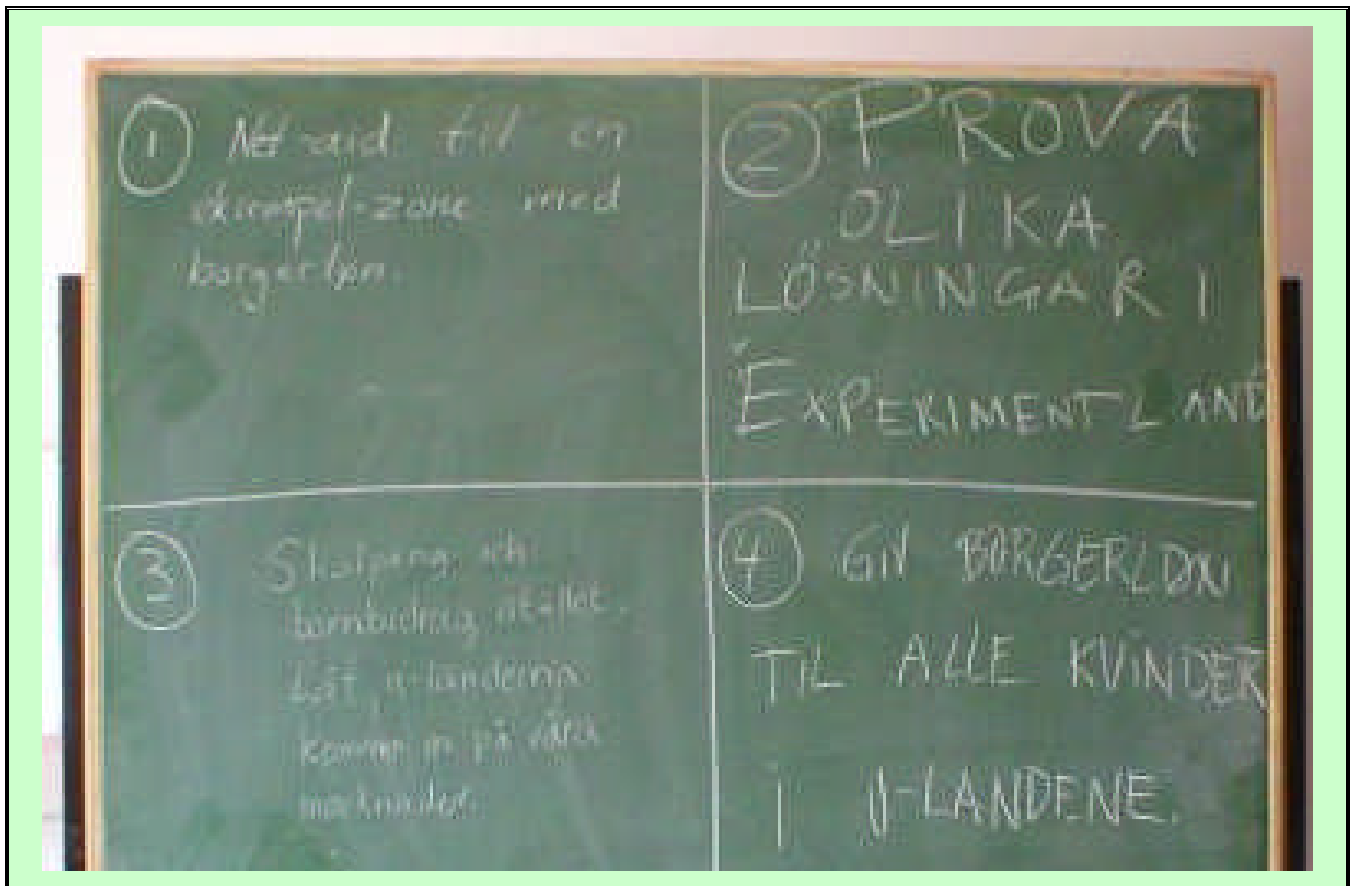 1
til en
-zone med
borgerløn.
2 PROVA
OLIKA
LÖSNINGAR I
EXPERIMENTLAND
3
barnbidrag istället.
Låt u-länderna
komma in på våra
marknader.
4 GIV BORGERLØN
TIL ALLE KVINDER
I U-LANDENE.